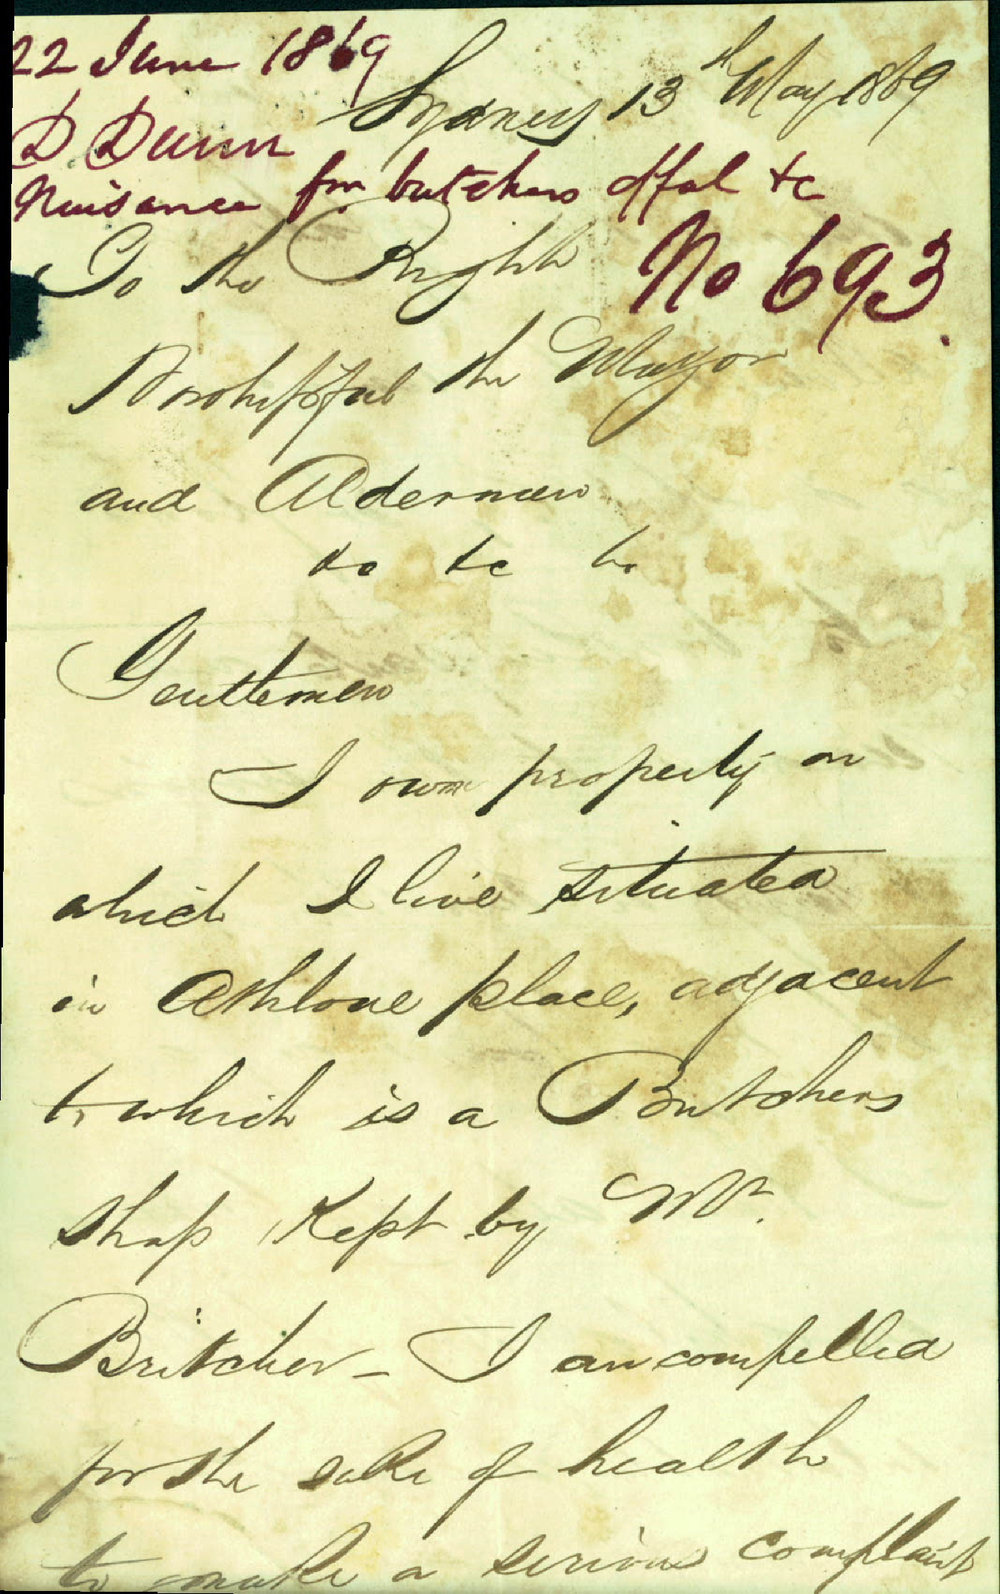 22 June 1869
Sydney 13th May 1869
D Dunn
Nuisance from butchers offal &c
No 693.
To the Right
Worshipful the Mayor
and Aldermen
&c &c &c
Gentlemen
I own property on
which I live situated
in Ashlone place, adjacent
to which is a Butchers
shop Kept by Mr.
Britcher – I am compelled
for the sake of health
to make a serious complaint